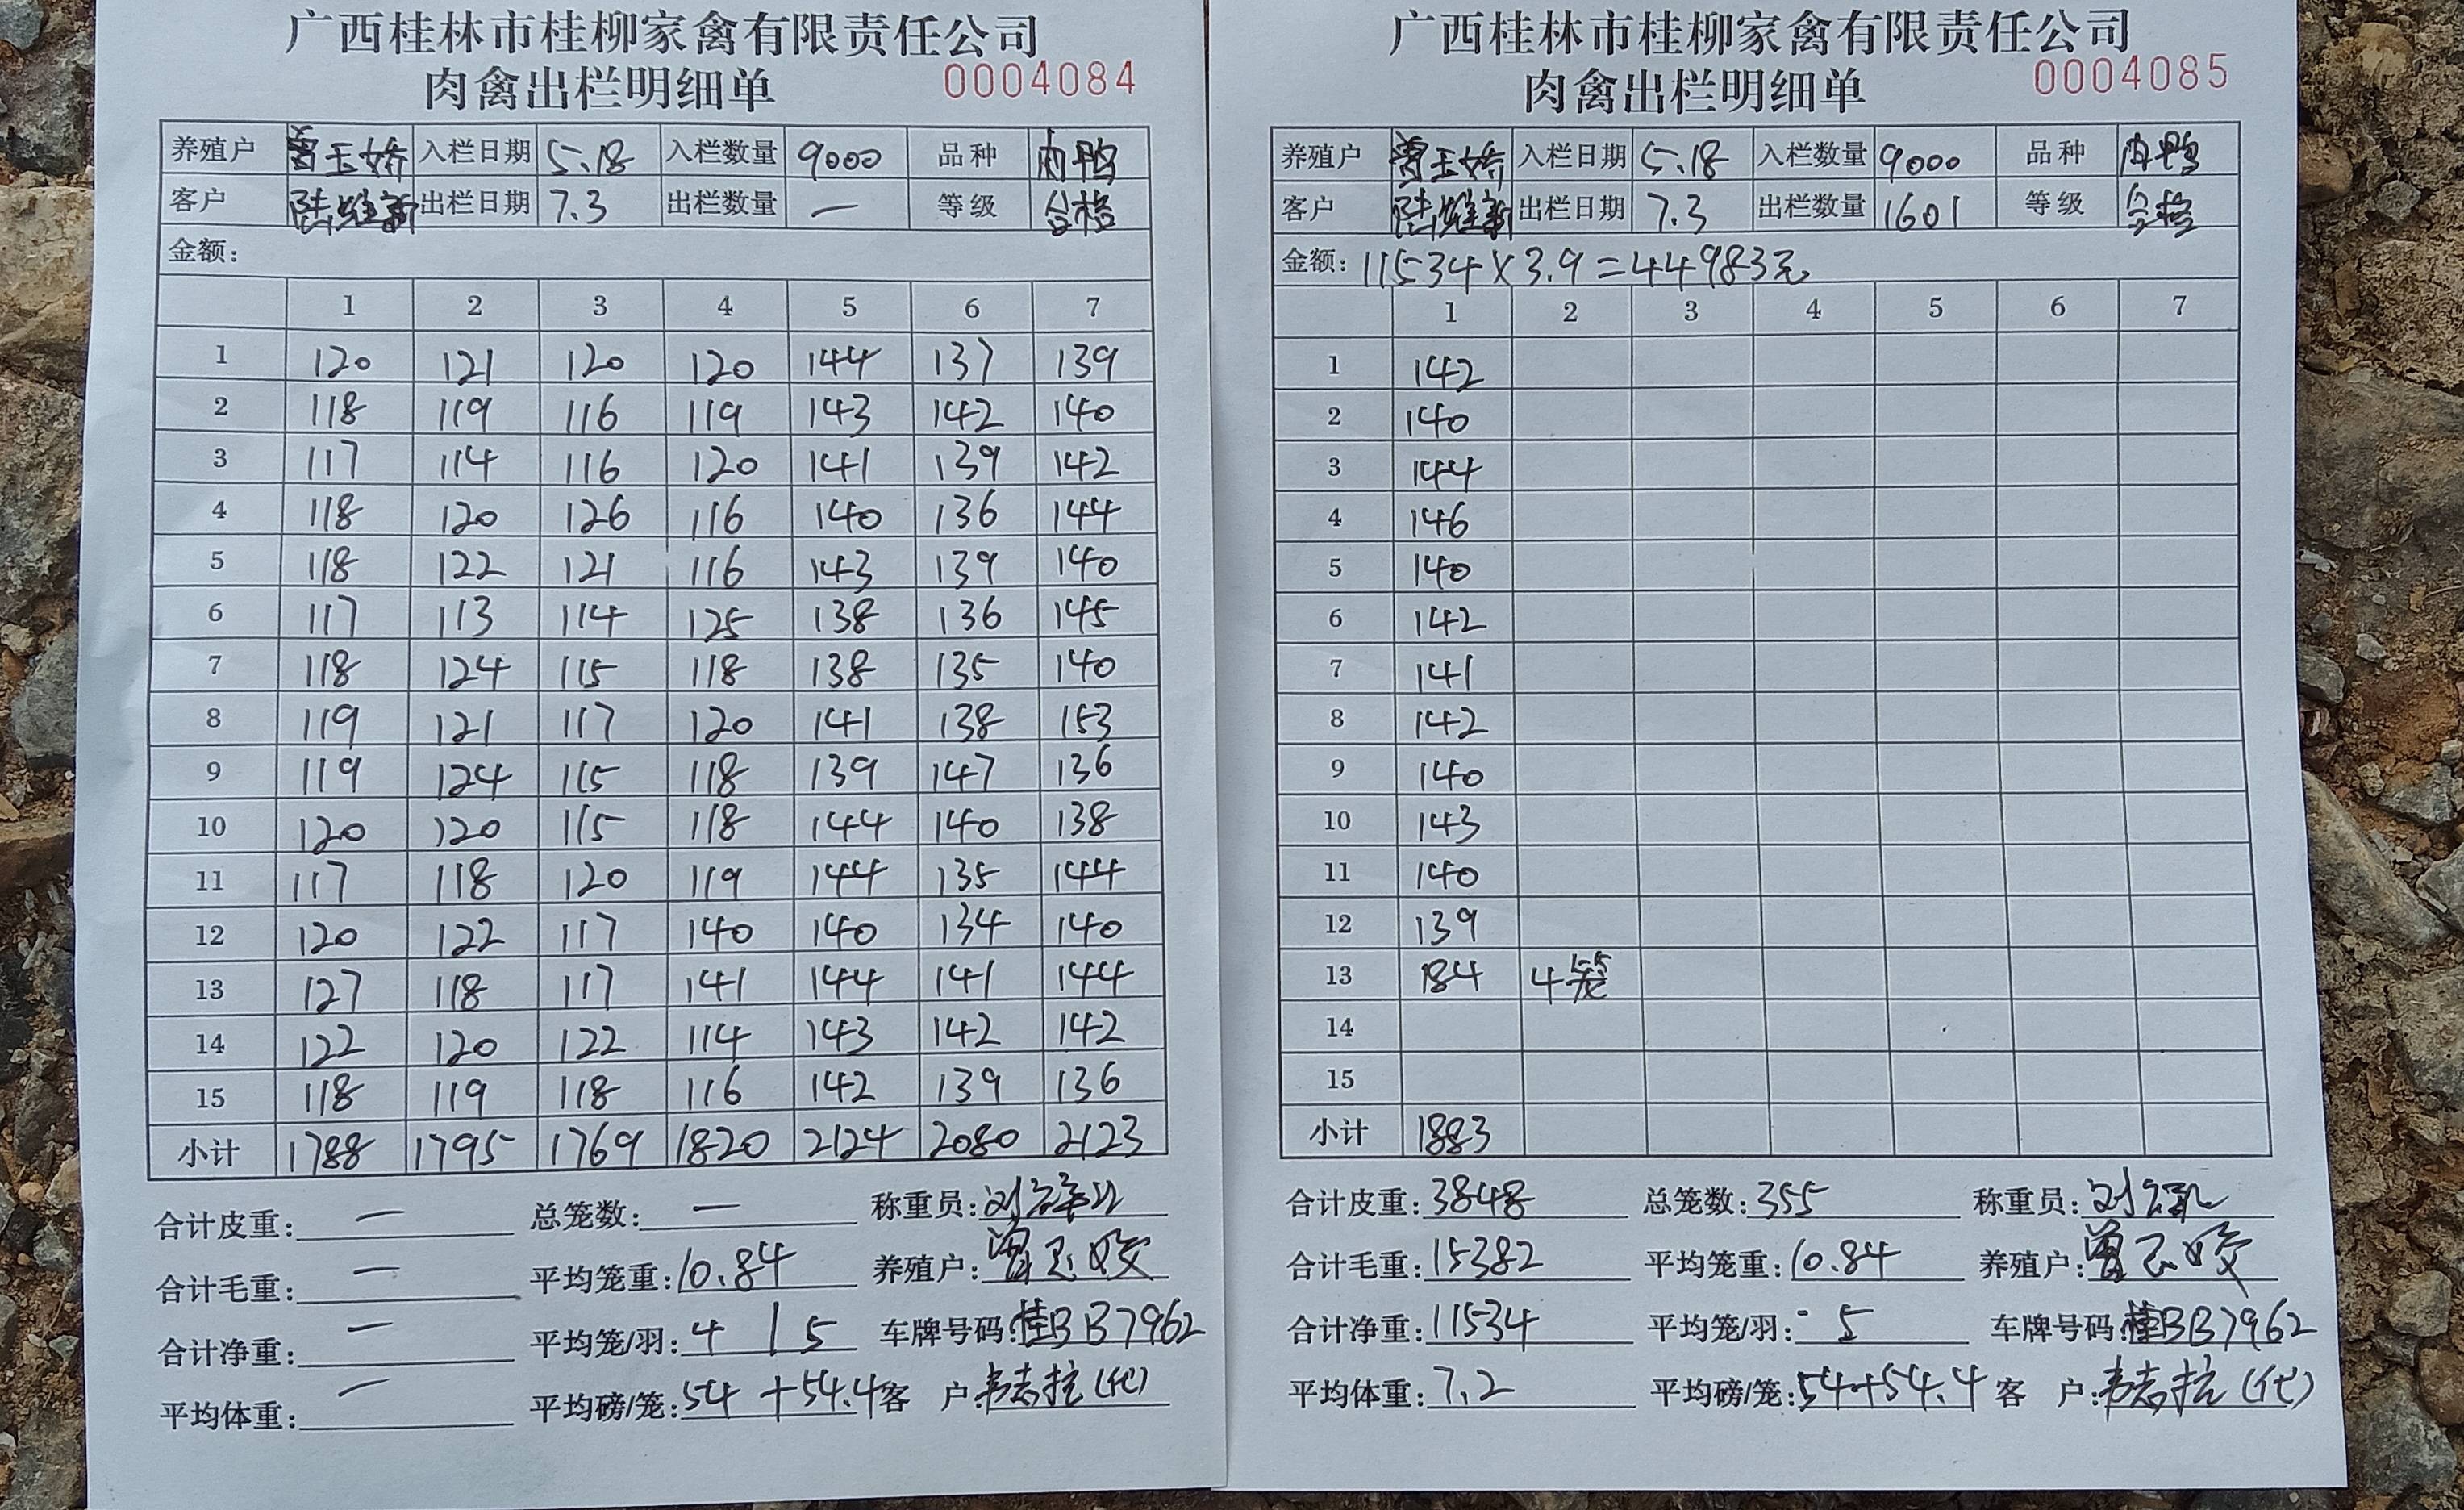 广西桂林市桂柳家禽有限责任公司
肉禽出栏明细单 0004084
养殖户 曾玉娇 入栏日期 5.18 入栏数量 9000 品种 肉鸭
客户 陆维新 出栏日期 7.3 出栏数量 一 等级 合格
金额:
1 2 3 4 5 6 7
1 120 121 120 120 144 137 139
2 118 119 116 119 143 142 140
3 117 114 116 120 141 139 142
4 118 120 126 116 140 136 144
5 118 122 121 116 143 139 140
6 117 113 114 125 138 136 145
7 118 124 115 118 138 135 140
8 119 121 117 120 141 138 153
9 119 124 115 118 139 147 136
10 120 120 115 118 144 140 138
11 117 118 120 119 144 135 144
12 120 122 117 140 140 134 140
13 127 118 117 141 144 141 144
14 122 120 122 114 143 142 142
15 118 119 118 116 142 139 136
小计 1788 1795 1769 1820 2124 2080 2123
合计皮重: 一 总笼数: 一 称重员:
合计毛重: 一 平均笼重: 10.84 养殖户:
合计净重: 一 平均笼/羽: 4 | 5 车牌号码: 桂BB7962
平均体重: 一 平均磅/笼: 54 + 54.4 客 户: (代)
广西桂林市桂柳家禽有限责任公司
肉禽出栏明细单 0004085
养殖户 曾玉娇 入栏日期 5.18 入栏数量 9000 品种 肉鸭
客户 陆维新 出栏日期 7.3 出栏数量 1601 等级 合格
金额: 11534×3.9=44983元
1 2 3 4 5 6 7
1 142
2 140
3 144
4 146
5 140
6 142
7 141
8 142
9 140
10 143
11 140
12 139
13 184 4笼
14
15
小计 1883
合计皮重: 3848 总笼数: 355 称重员:
合计毛重: 15382 平均笼重: 10.84 养殖户:
合计净重: 11534 平均笼/羽: 5 车牌号码: 桂BB7962
平均体重: 7.2 平均磅/笼: 54+54.4 客 户: (代)